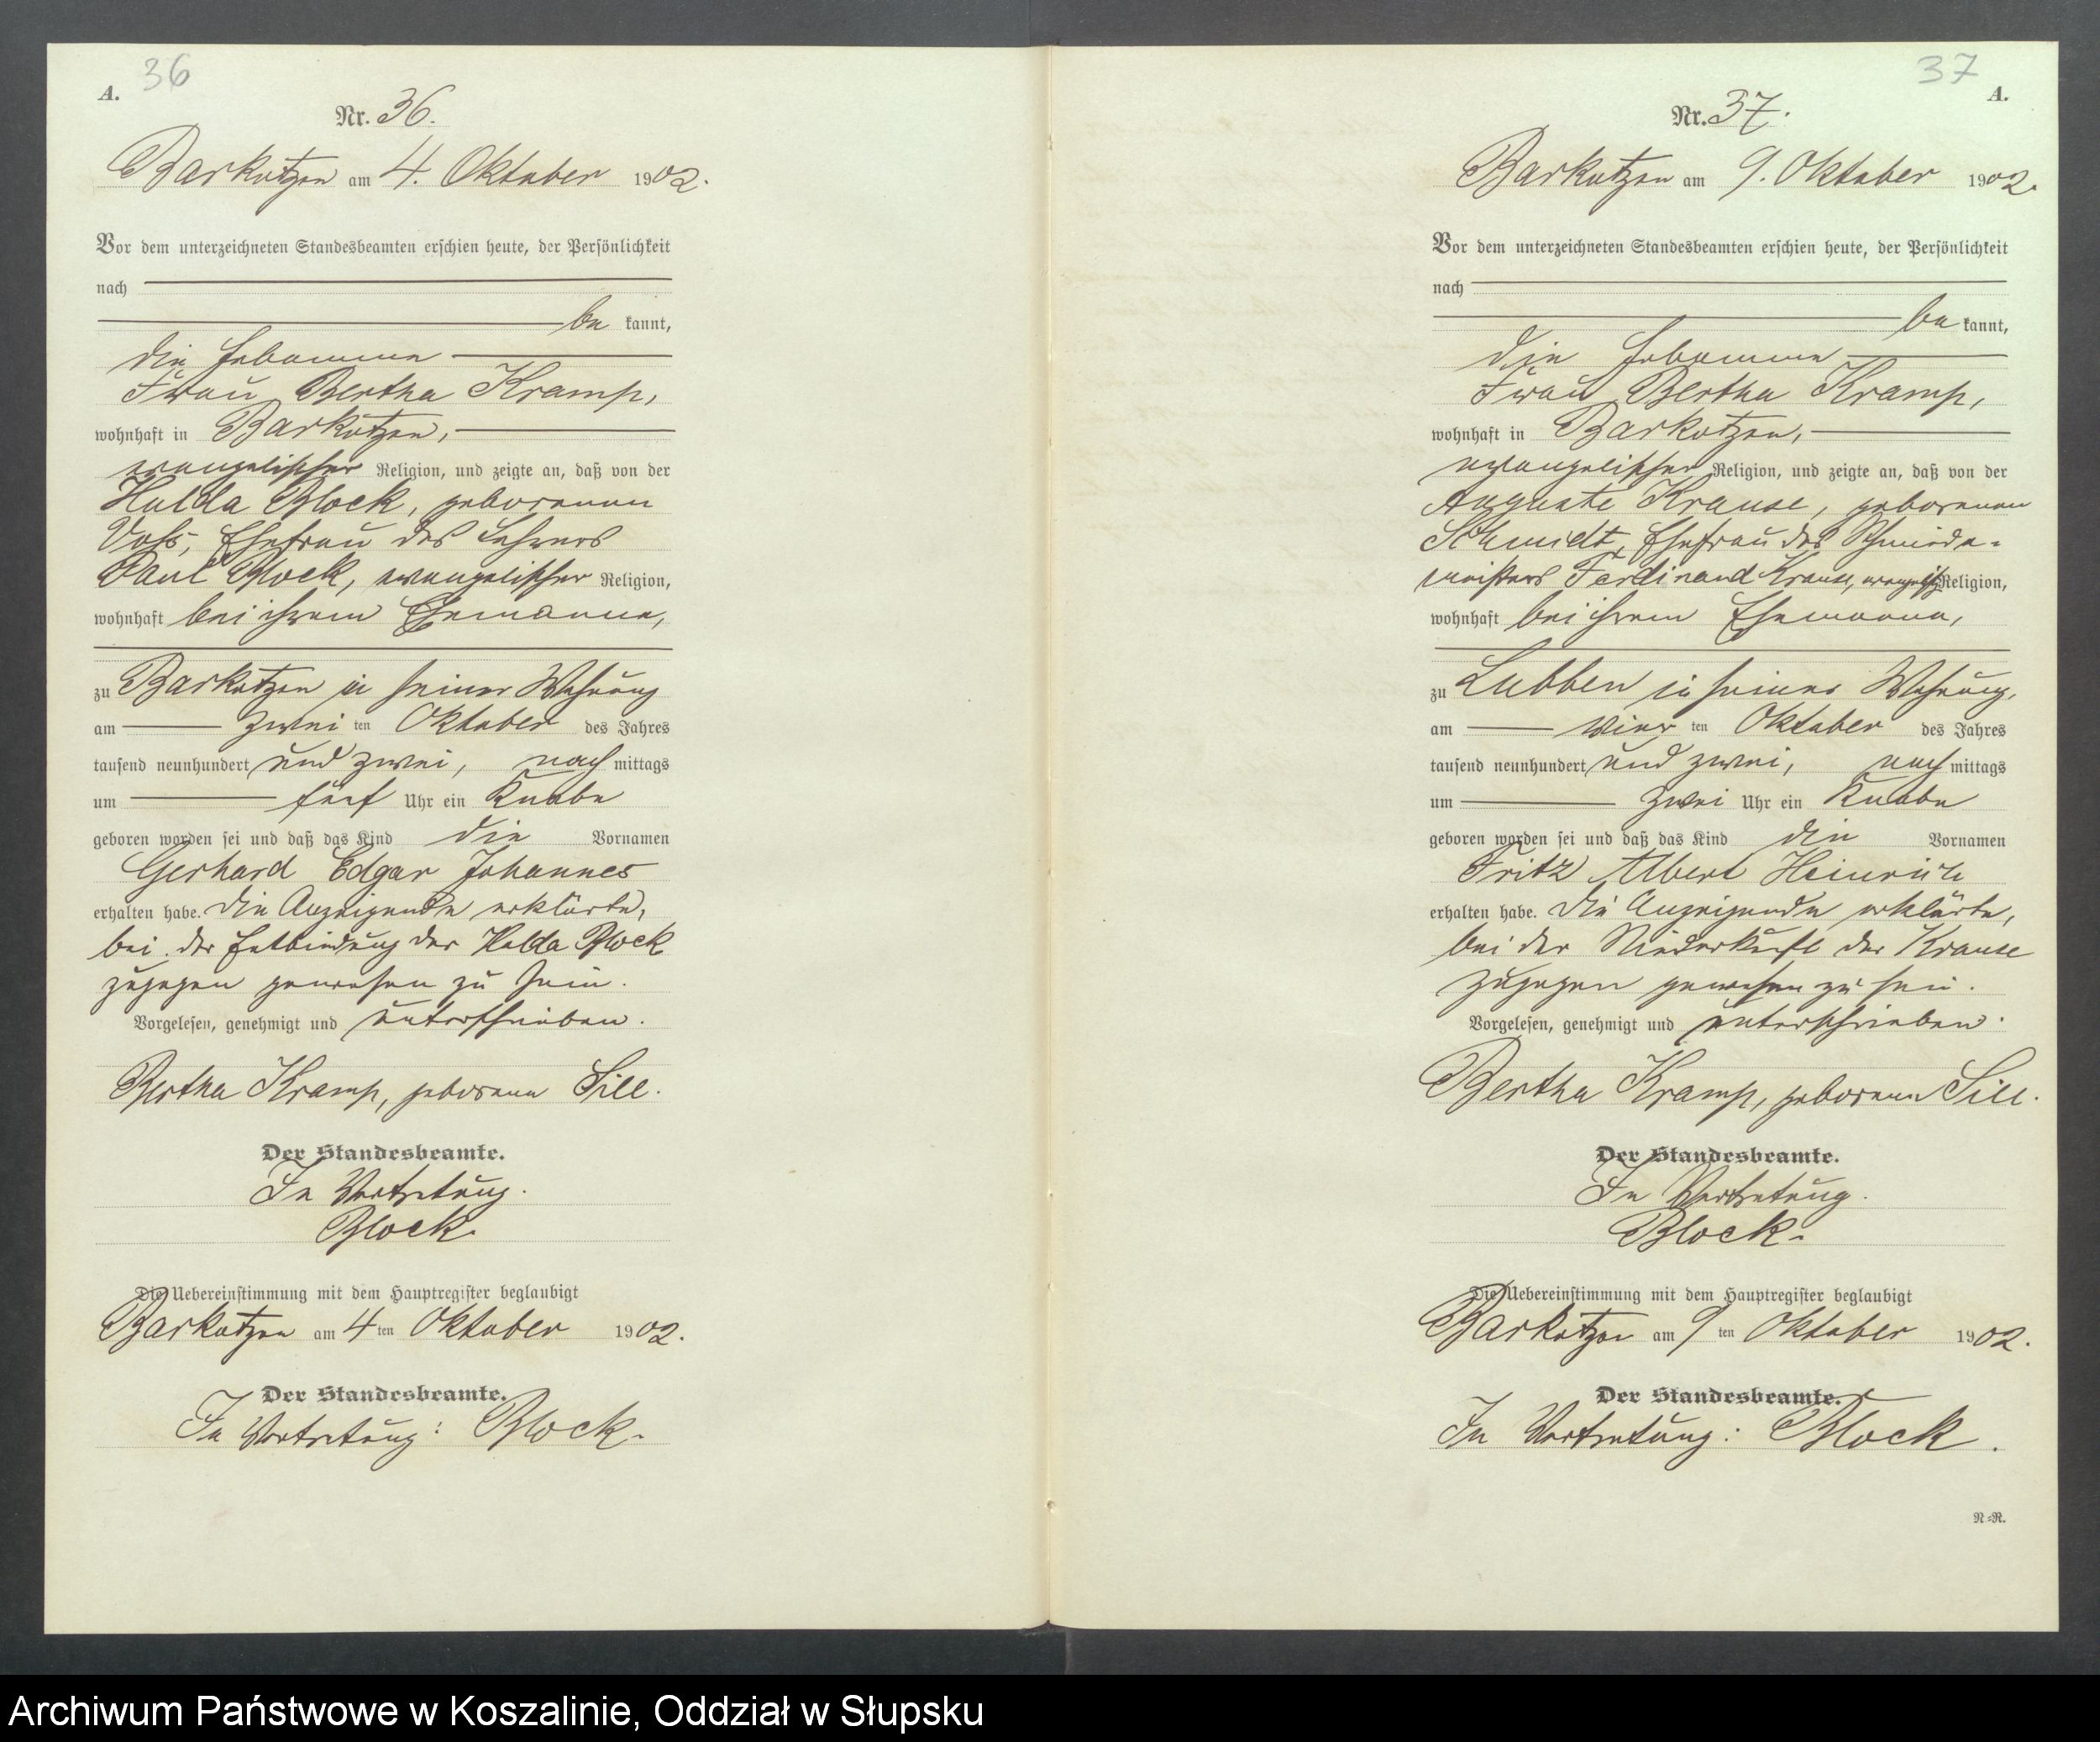 36
A.
Nr. 36.
Barkotzen am 4. Oktober 1902.
Vor dem unterzeichneten Standesbeamten erschien heute, der Persönlichkeit
nach
be kannt,
die Hebamme
Frau Bertha Kramp,
wohnhaft in Barkotzen,
evangelischer Religion, und zeigte an, daß von der
Hulda Block, geborenen
Voß, Ehefrau des Lehrers
Paul Block, evangelischer Religion,
wohnhaft bei ihrem Ehemanne,
zu Barkotzen in seiner Wohnung
am zwei ten Oktober des Jahres
tausend neunhundert und zwei, nach mittags
um fünf Uhr ein Knabe
geboren worden sei und daß das Kind die Vornamen
Gerhard Edgar Johannes
erhalten habe. Die Anzeigende erklärte,
bei der Entbindung der Hulda Block
zugegen gewesen zu sein.
Vorgelesen, genehmigt und unterschrieben.
Bertha Kramp, geborene Sill.
Der Standesbeamte.
In Vertretung.
Block.
Die Uebereinstimmung mit dem Hauptregister beglaubigt
Barkotzen am 4 ten Oktober 1902.
Der Standesbeamte.
In Vertretung: Block.
37
A.
Nr. 37.
Barkotzen am 9. Oktober 1902.
Vor dem unterzeichneten Standesbeamten erschien heute, der Persönlichkeit
nach
be kannt,
die Hebamme
Frau Bertha Kramp,
wohnhaft in Barkotzen,
evangelischer Religion, und zeigte an, daß von der
Auguste Krause, geborenen
Schmidt, Ehefrau des Schmiede-
meisters Ferdinand Krause, evangelisch Religion,
wohnhaft bei ihrem Ehemanne,
zu Lubben in seiner Wohnung,
am vier ten Oktober des Jahres
tausend neunhundert und zwei, nach mittags
um zwei Uhr ein Knabe
geboren worden sei und daß das Kind die Vornamen
Fritz Albert Heinrich
erhalten habe. Die Anzeigende erklärte,
bei der Niederkunft der Krause
zugegen gewesen zu sein.
Vorgelesen, genehmigt und unterschrieben.
Bertha Kramp, geborene Sill.
Der Standesbeamte.
In Vertretung.
Block.
Die Uebereinstimmung mit dem Hauptregister beglaubigt
Barkotzen am 9 ten Oktober 1902.
Der Standesbeamte.
In Vertretung: Block.
N.=R.
Archiwum Państwowe w Koszalinie, Oddział w Słupsku